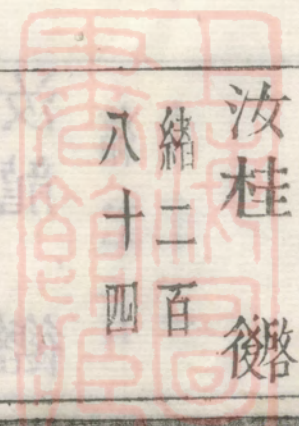 汝桂 啓後
緒二百
八十四